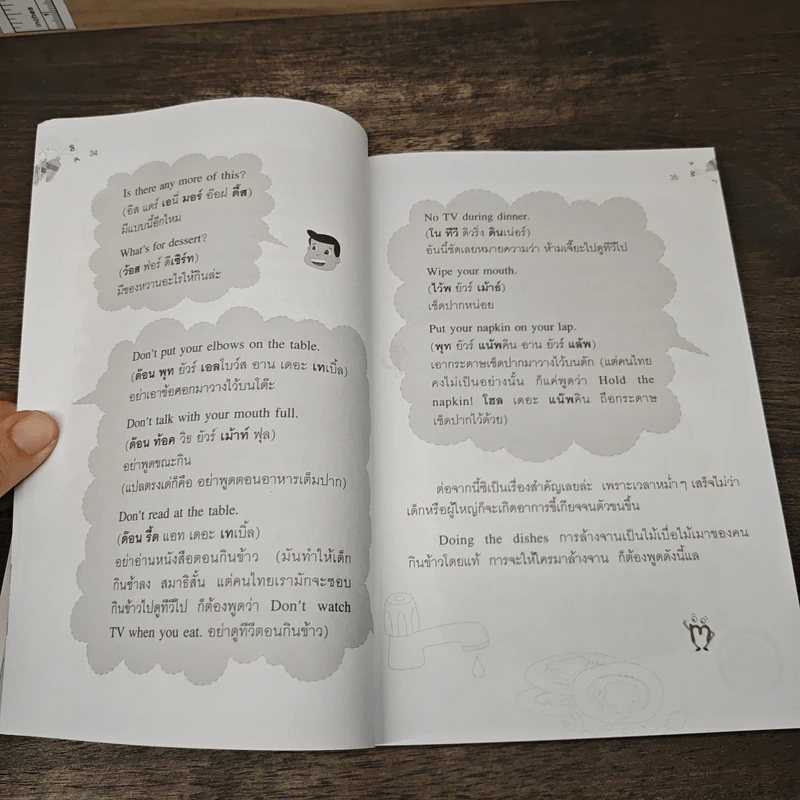 inches
34
Is there any more of this?
(อิส แดร์ เอนี่ มอร์ อ๊อฝ ดิ๊ส)
มีแบบนี้อีกไหม
What's for dessert?
(ว้อส ฟอร์ ดีเซิร์ท)
มีของหวานอะไรให้กินล่ะ
Don't put your elbows on the table.
(ด๊อน พุท ยัวร์ เอลโบว์ส อาน เดอะ เทเบิ้ล)
อย่าเอาข้อศอกมาวางไว้บนโต๊ะ
Don't talk with your mouth full.
(ด๊อน ท้อค วิธ ยัวร์ เม้าท์ ฟุล)
อย่าพูดขณะกิน
(แปลตรงเด๋ก็คือ อย่าพูดตอนอาหารเต็มปาก)
Don't read at the table.
(ด๊อน รี้ด แอท เดอะ เทเบิ้ล)
อย่าอ่านหนังสือตอนกินข้าว (มันทำให้เด็ก
กินช้าลง สมาธิสั้น แต่คนไทยเรามักจะชอบ
กินข้าวไปดูทีวีไป ก็ต้องพูดว่า Don't watch
TV when you eat. อย่าดูทีวีตอนกินข้าว)
35
No TV during dinner.
(โน ทีวี ดิวริ่ง ดินเน่อร์)
อันนี้ชัดเลยหมายความว่า ห้ามเจี๊ยะไปดูทีวีไป
Wipe your mouth.
(ไว้พ ยัวร์ เม้าธ์)
เช็ดปากหน่อย
Put your napkin on your lap.
(พุท ยัวร์ แน้พคิน อาน ยัวร์ แล้พ)
เอากระดาษเช็ดปากมาวางไว้บนตัก (แต่คนไทย
คงไม่เป็นอย่างนั้น ก็แค่พูดว่า Hold the
napkin! โฮล เดอะ แน๊พคิน ถือกระดาษ
เช็ดปากไว้ด้วย)
ต่อจากนี้ซิเป็นเรื่องสำคัญเลยล่ะ เพราะเวลาหม่ำๆ เสร็จไม่ว่า
เด็กหรือผู้ใหญ่ก็จะเกิดอาการขี้เกียจจนตัวขนขึ้น
Doing the dishes การล้างจานเป็นไม้เบื่อไม้เมาของคน
กินข้าวโดยแท้ การจะให้ใครมาล้างจาน ก็ต้องพูดดังนี้แล